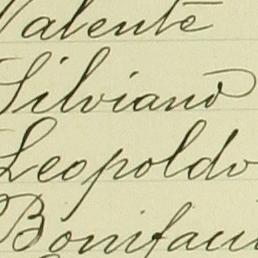 Valente
Silviano
Leopoldo
Bonifaci